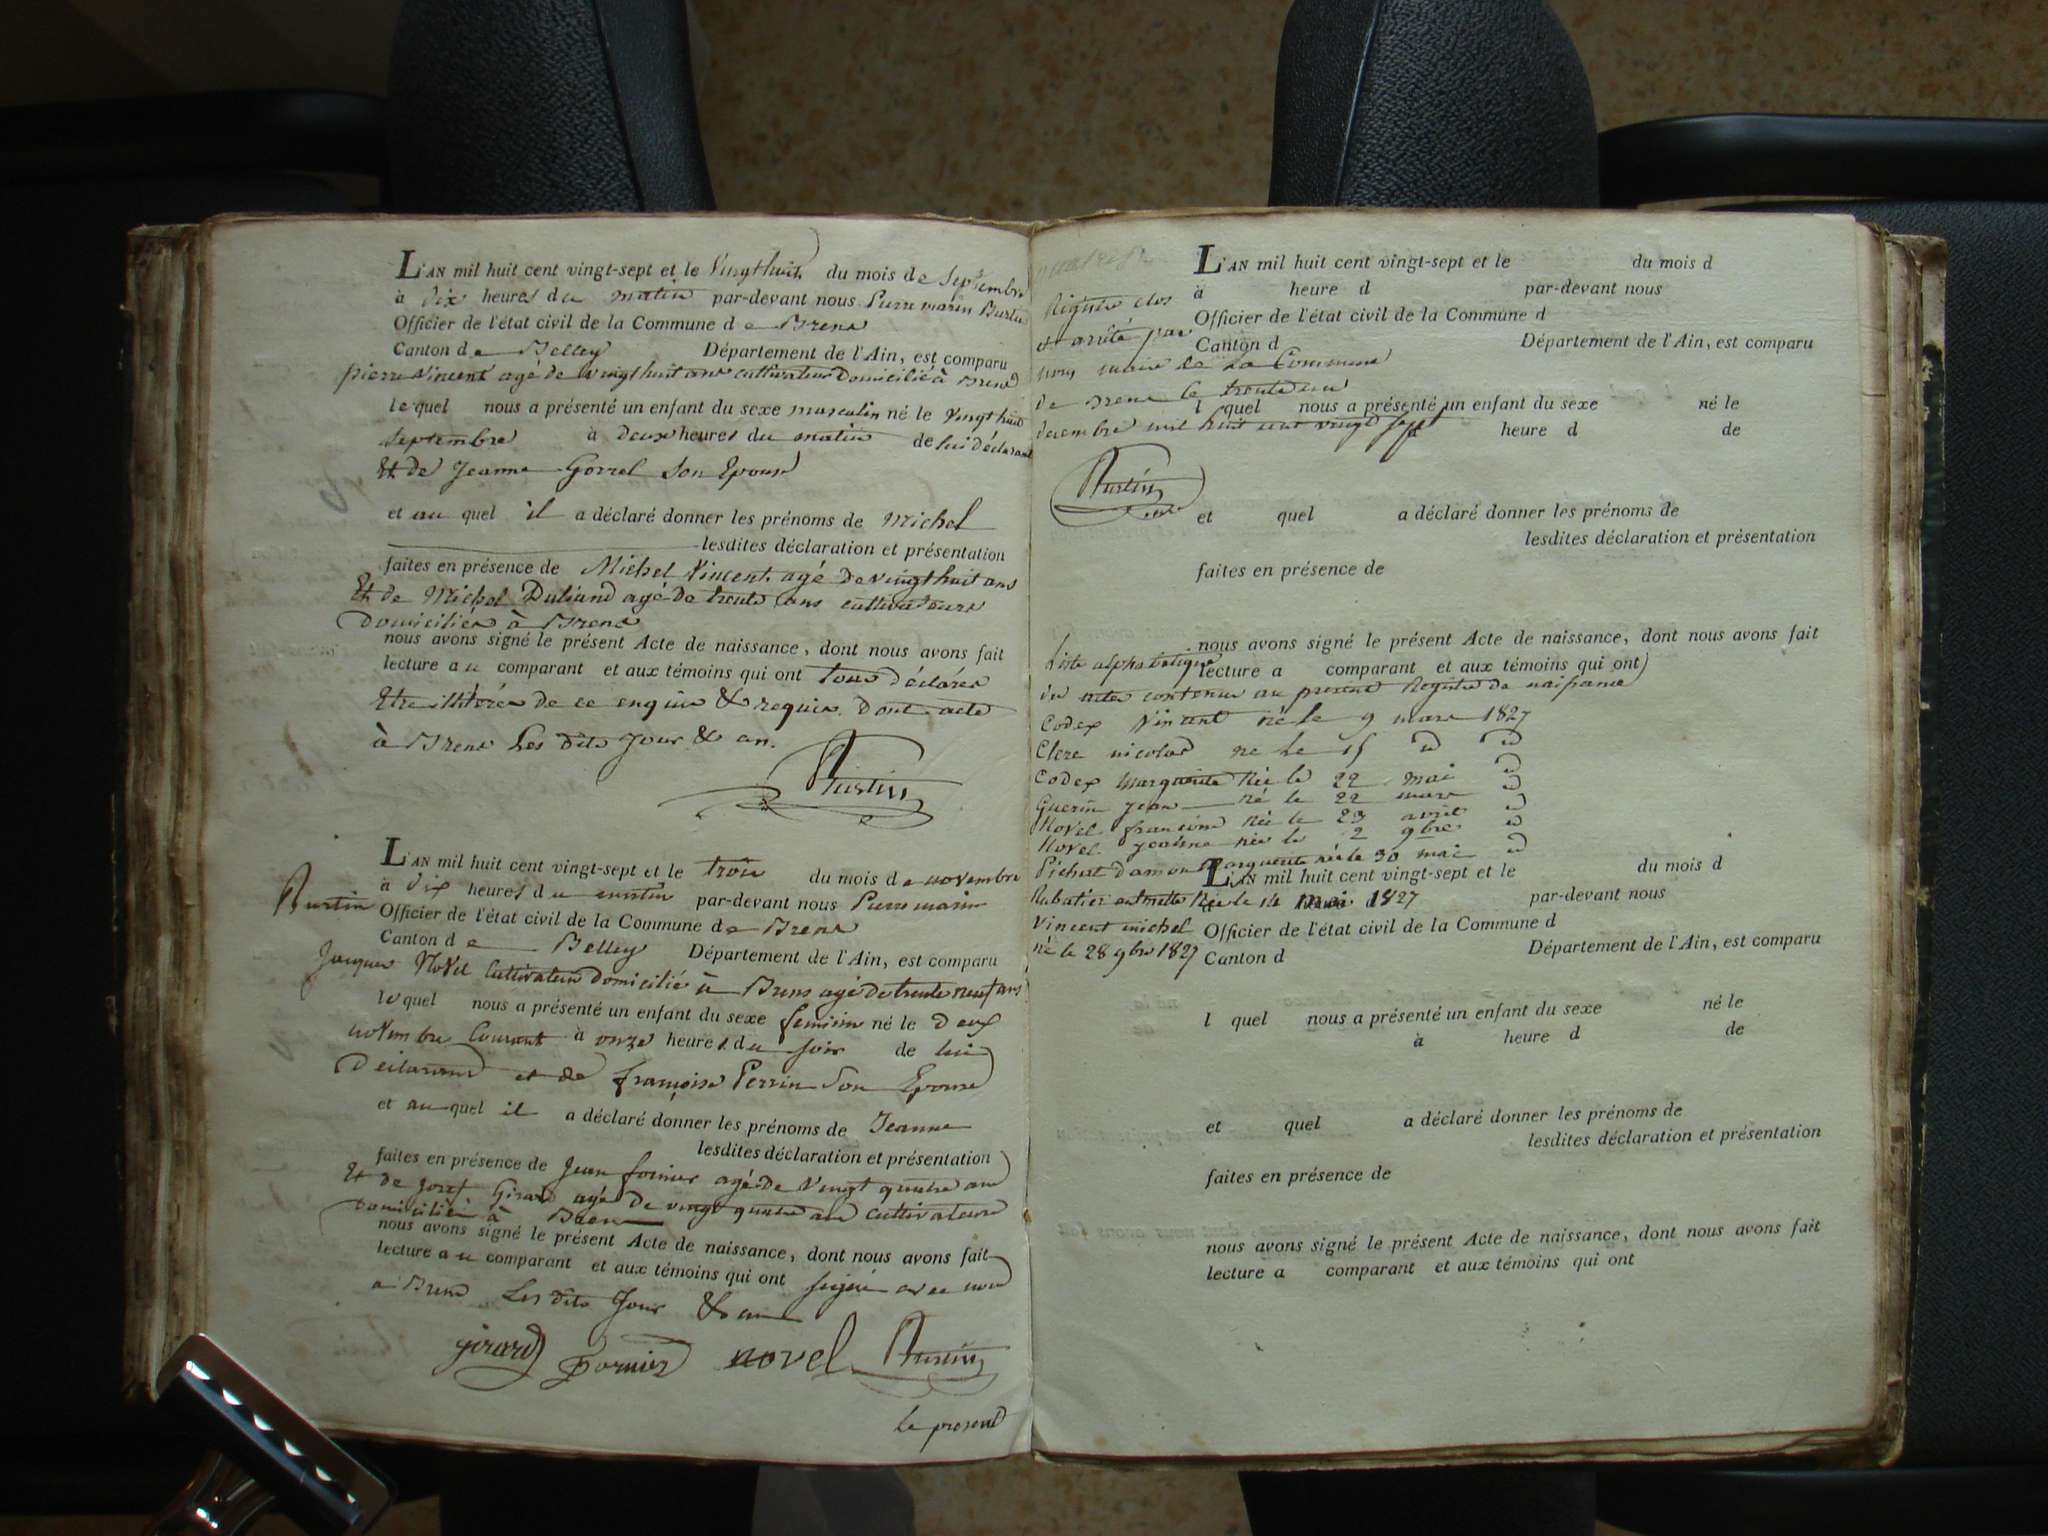 L'AN mil huit cent vingt-sept et le Vingthuit du mois de Septembre
à Dix heures du matin par-devant nous Pierre marin Burtin
Officier de l'état civil de la Commune de Brens
Canton de Belley Département de l'Ain, est comparu
pierre Vincent agé de vingthuit ans cultivateur Domicilié à Brens
lequel nous a présenté un enfant du sexe masculin né le vingthuit
septembre à deux heures du matin de lui déclarant
Et de Jeanne Gorrel Son Epouse
et au quel il a déclaré donner les prénoms de Michel
lesdites déclaration et présentation
faites en présence de Michel Vincent agé de vingthuit ans
Et de Michel Duliand agé de trente ans cultivateurs
Domiciliés à Brens
nous avons signé le présent Acte de naissance, dont nous avons fait
lecture au comparant et aux témoins qui ont tous déclarés
Etre illitérés de ce enquis & requis. Dont acte
à Brens Les dits Jour & an.
Burtin
L'AN mil huit cent vingt-sept et le trois du mois de novembre
à Dix heures du matin par-devant nous Pierre marin
Burtin Officier de l'état civil de la Commune de Brens
Canton de Belley Département de l'Ain, est comparu
Jacques Novel Cultivateur domicilié à Brens agé de trente neuf ans
lequel nous a présenté un enfant du sexe feminin né le deux
novembre Courant à onze heures du soir de lui
Déclarant et de françoise Perrin Son Epouse
et au quel il a déclaré donner les prénoms de Jeanne
lesdites déclaration et présentation
faites en présence de Jean fornier agé de vingt quatre ans
Et de josef Girard agé de vingt quatre ans cultivateurs
domiciliés à Brens
nous avons signé le présent Acte de naissance, dont nous avons fait
lecture au comparant et aux témoins qui ont signé avec nous
a Brens Les dits Jour & an
girard fornier novel Burtin
le present
L'AN mil huit cent vingt-sept et le du mois d
à heure d par-devant nous
Registre clos
Officier de l'état civil de la Commune d
et arrêté par
Canton d Département de l'Ain, est comparu
nous maire de La Commune
de Brens le trente un
l quel nous a présenté un enfant du sexe né le
decembre mil huit cent vingt sept
heure d de
Burtin
et quel a déclaré donner les prénoms de
lesdites déclaration et présentation
faites en présence de
nous avons signé le présent Acte de naissance, dont nous avons fait
Liste alphabetique
lecture a comparant et aux témoins qui ont
des actes contenus au present Registre de naissance
Codex Vincent né le 9 mars 1827
Clerc nicolas né le 15 d d
Codex Marguerite Née le 22 mai d
Guerin jean né le 22 mars d
Novel francoise Née le 23 avril d
Novel jeanne née le 2 9bre d
Pichert d'amour Marguerite née le 30 mai d
L'AN mil huit cent vingt-sept et le du mois d
à par-devant nous
Rubatier Née le 14 mai 1827
Vincent michel
Officier de l'état civil de la Commune d
né le 28 9bre 1827
Canton d Département de l'Ain, est comparu
l quel nous a présenté un enfant du sexe né le
à heure d de
et quel a déclaré donner les prénoms de
lesdites déclaration et présentation
faites en présence de
nous avons signé le présent Acte de naissance, dont nous avons fait
lecture a comparant et aux témoins qui ont